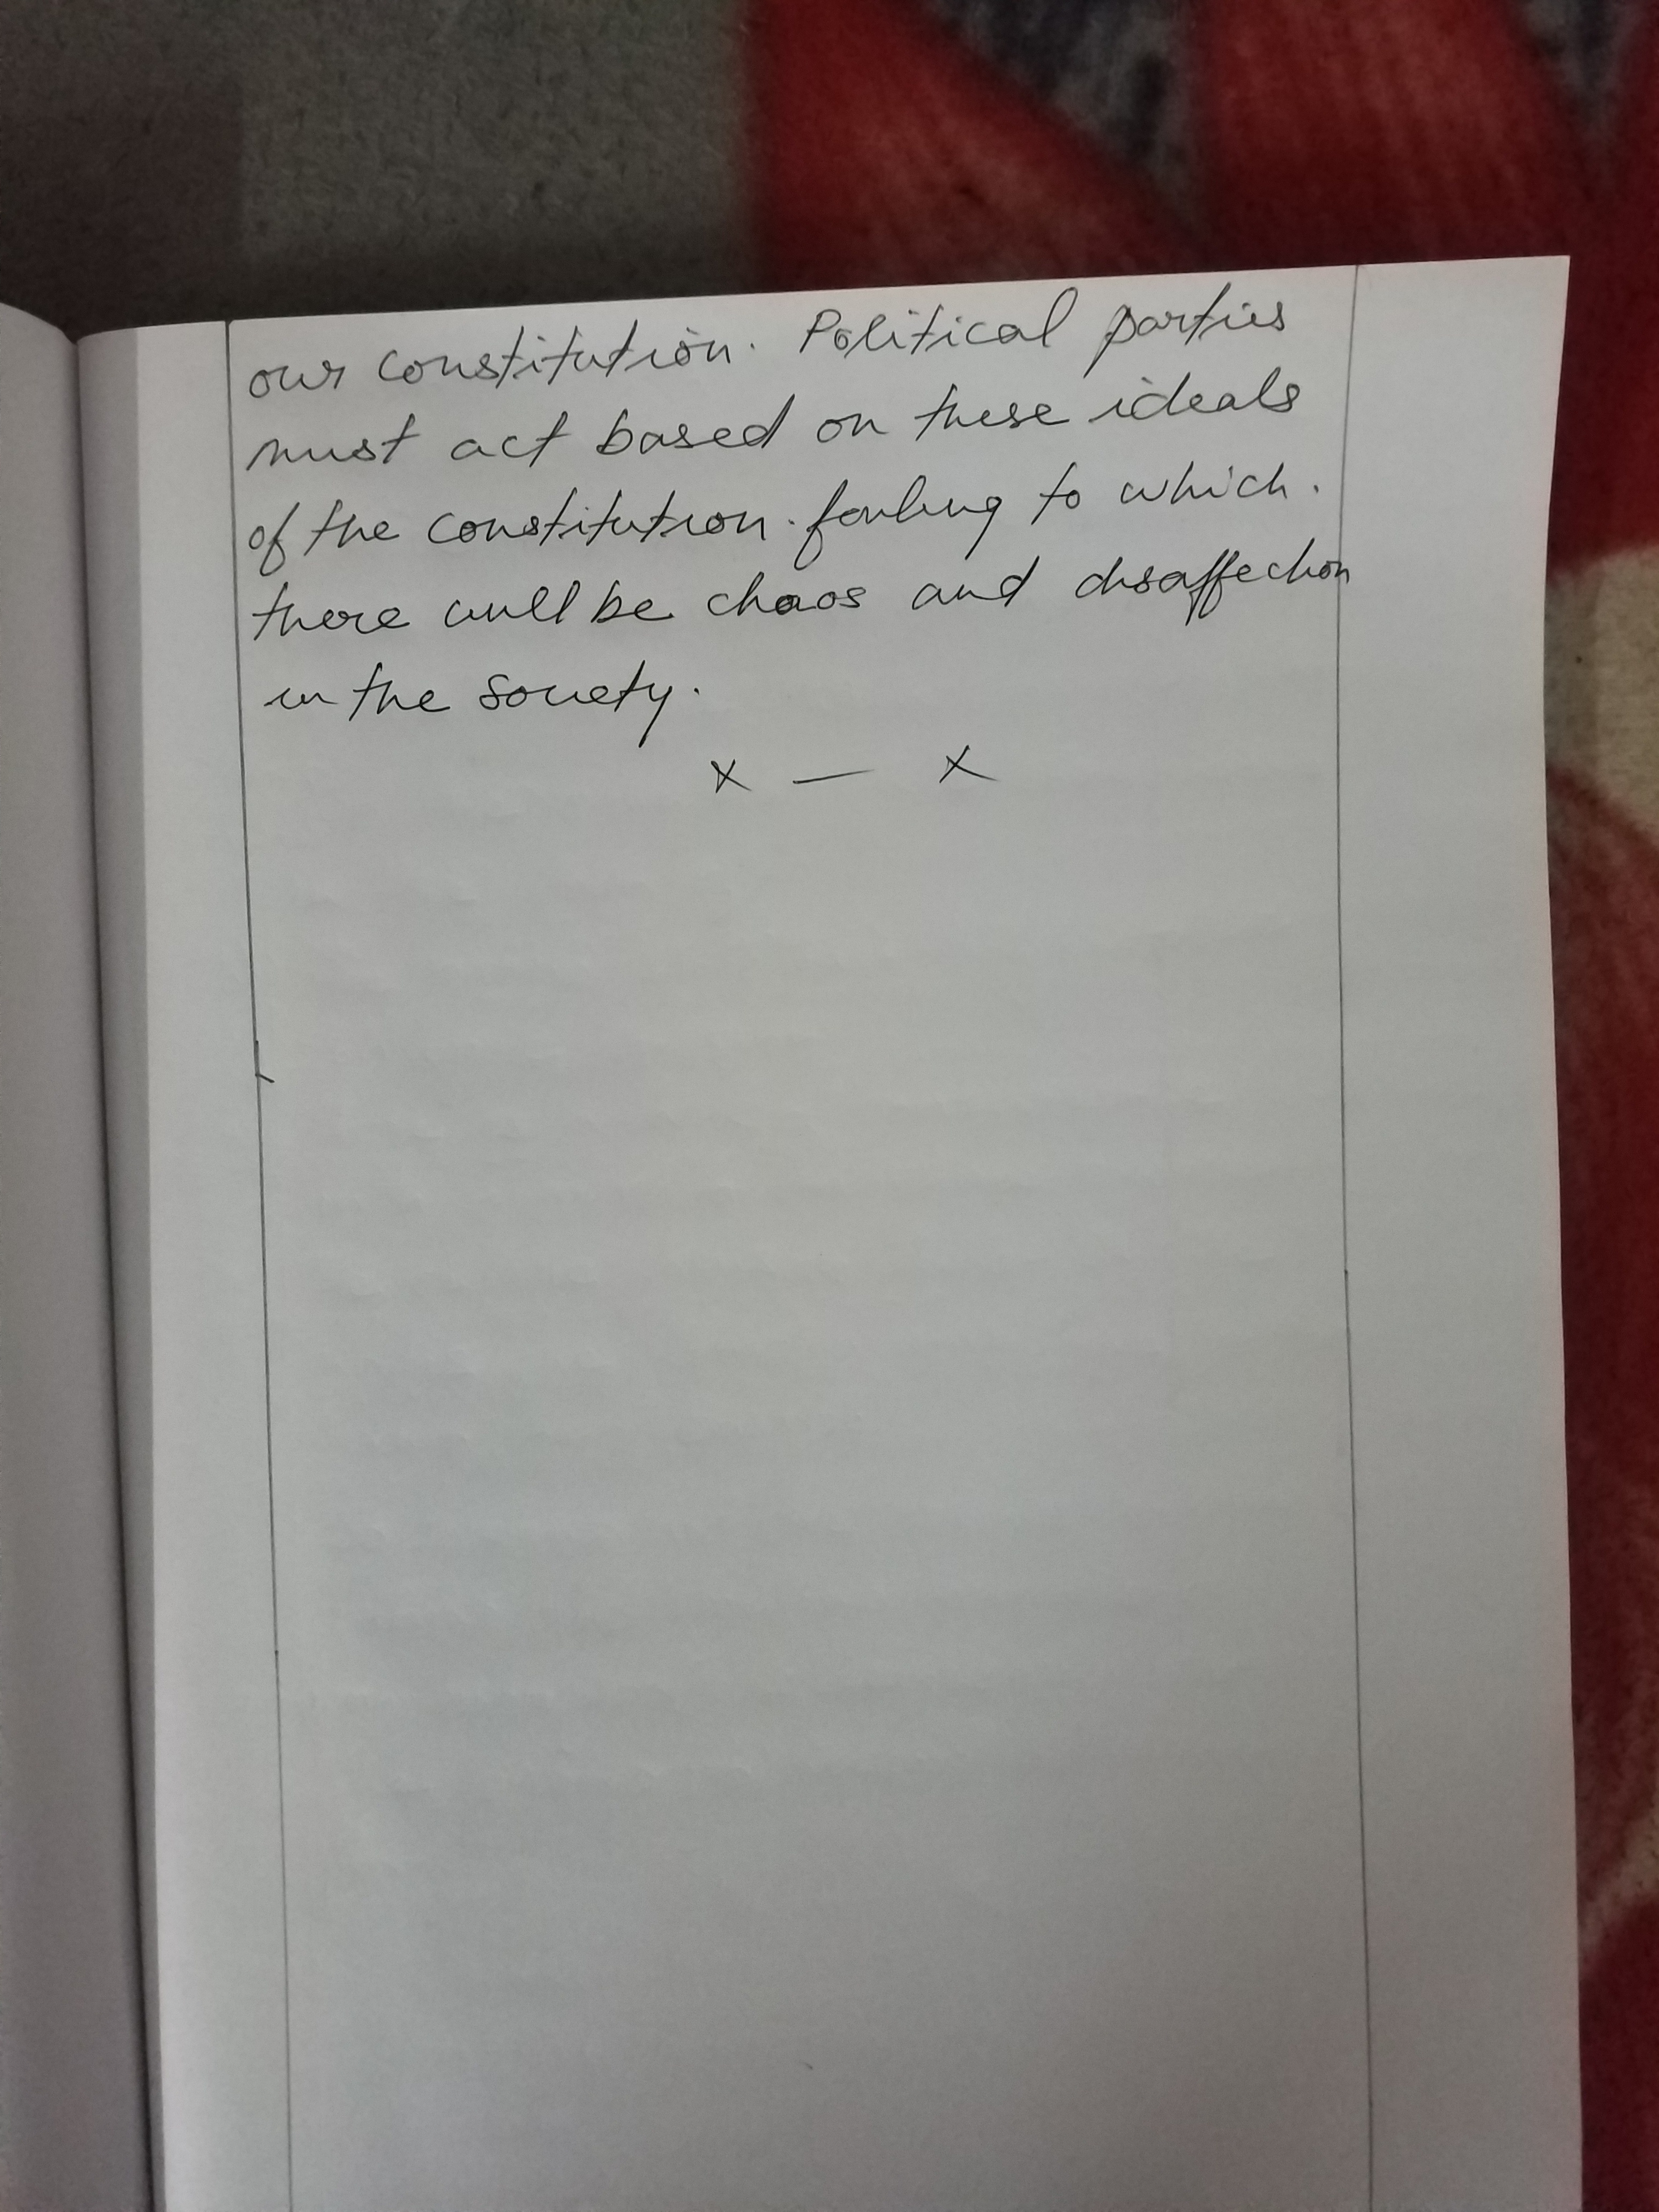 our constitution. Political parties
must act based on these ideals
of the constitution. failing to which.
there will be chaos and disaffection
in the society.
x — x